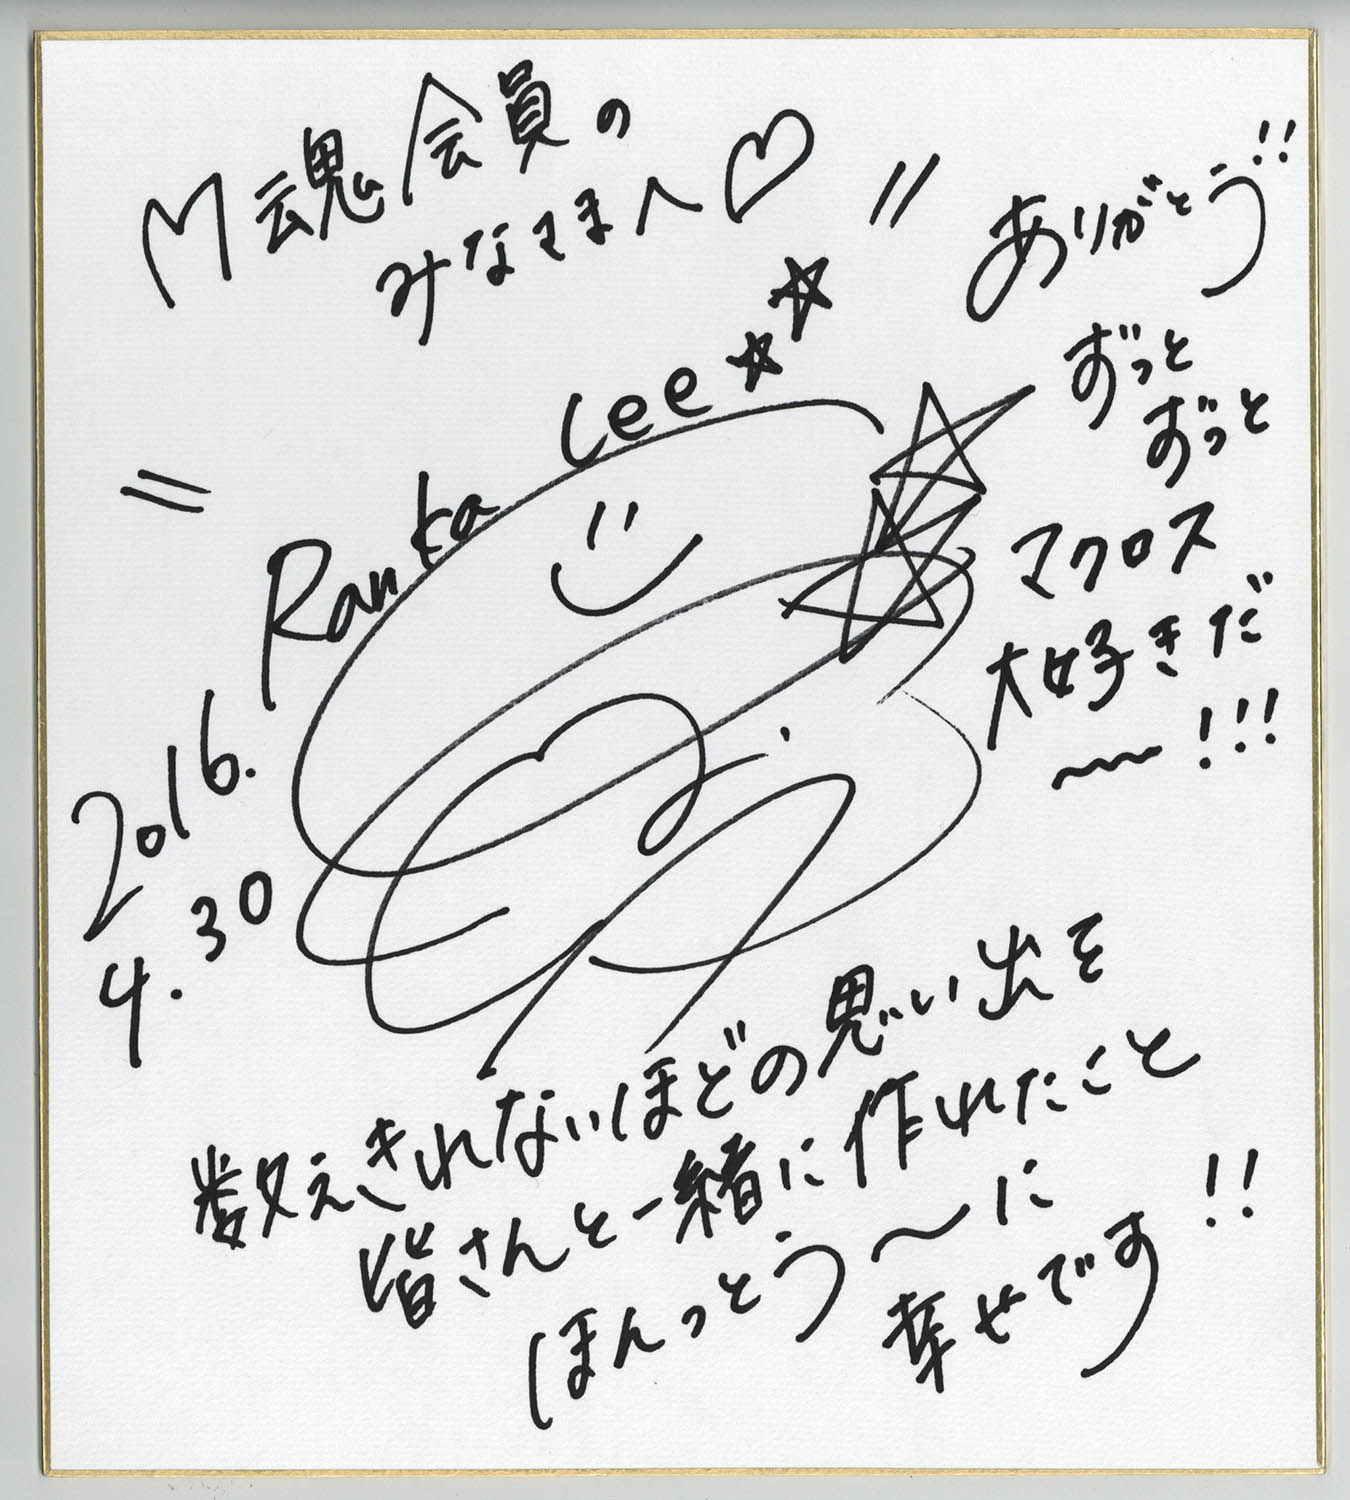 M魂会員の
みなさまへ♡
ありがとう!!
ずっと
ずっと
マクロス
大好きだ
〜!!!
Ranka Lee☆☆
2016.
4.30
数えきれないほどの思い出を
皆さんと一緒に作れたこと
ほんっとう〜に
幸せです!!